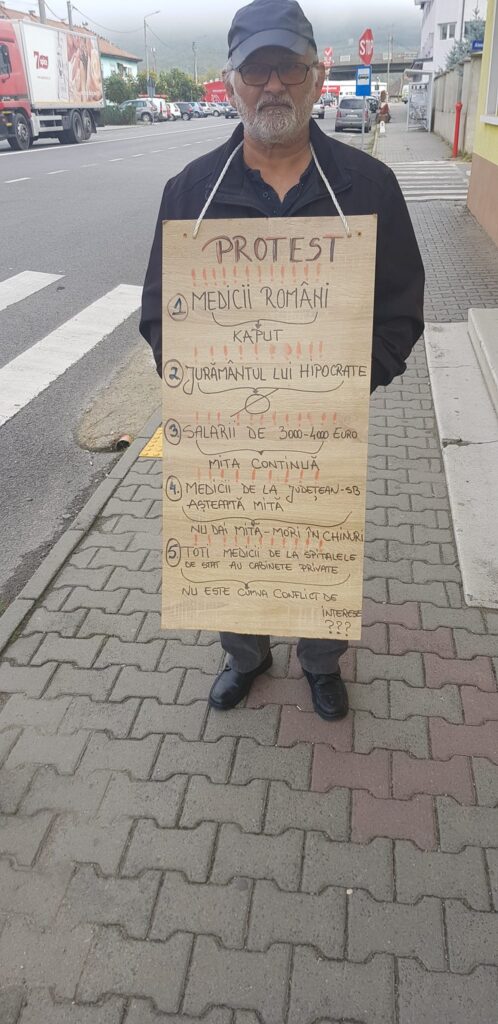 STOP
PROTEST
!!!!!!!!!!!
1 MEDICII ROMÂNI
KAPUT
2 JURĂMÂNTUL LUI HIPOCRATE
3 SALARII DE 3000-4000 EURO
MITA CONTINUĂ
4. MEDICII DE LA JUDEȚEAN-SB
AȘTEAPTĂ MITĂ
NU DAI MITĂ-MORI ÎN CHINURI
5 TOȚI MEDICII DE LA SPITALELE
DE STAT AU CABINETE PRIVATE
NU ESTE CUMVA CONFLICT DE
INTERESE
???